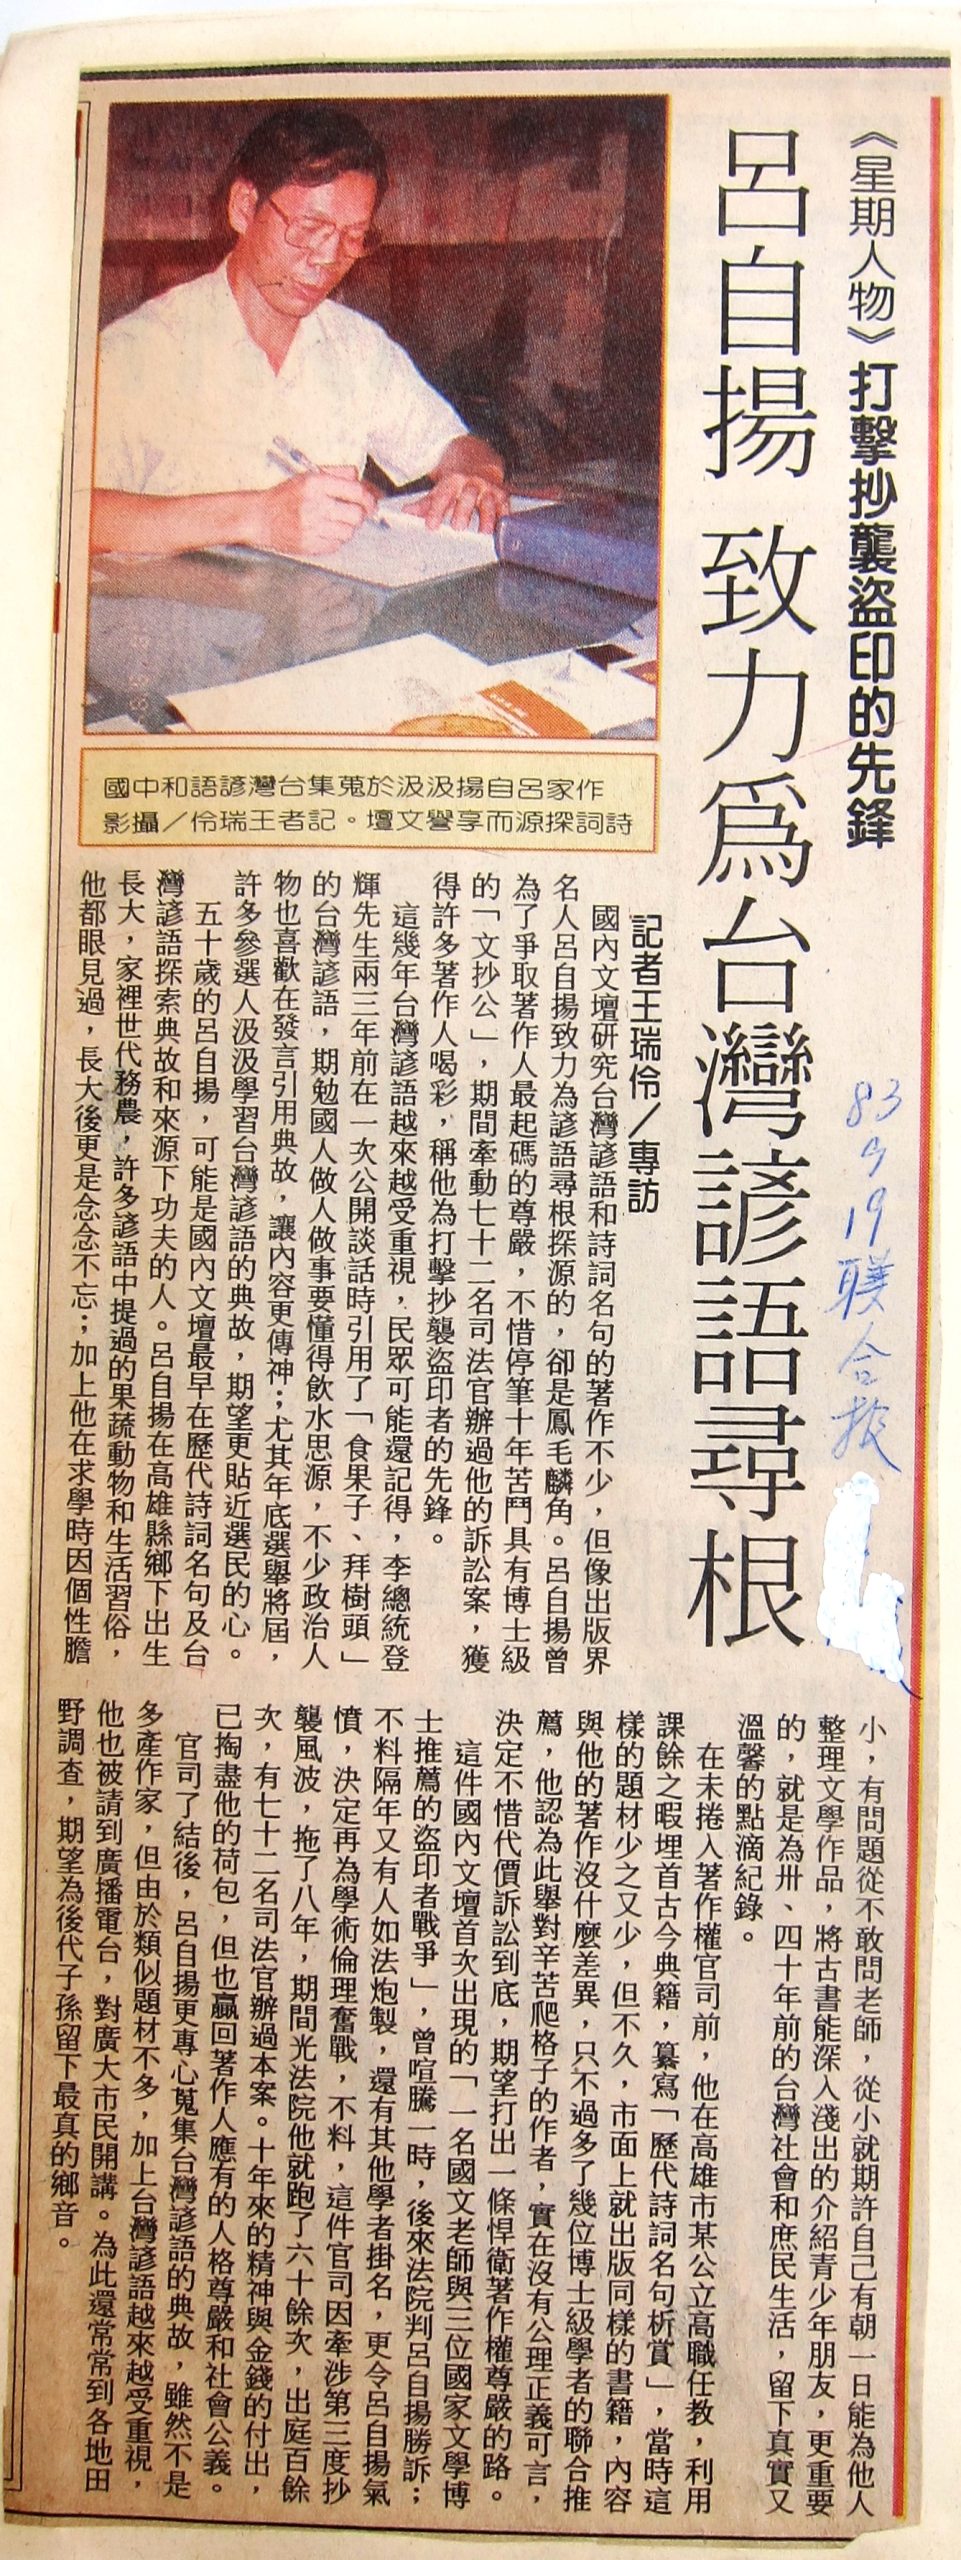 《星期人物》打擊抄襲盜印的先鋒
呂自揚 致力為台灣諺語尋根
83 9 19 聯合報
國中和語諺灣台集蒐於汲汲揚自呂家作
影攝／伶瑞王者記。壇文譽享而源探詞詩
記者王瑞伶／專訪
國內文壇研究台灣諺語和詩詞名句的著作不少，但像出版界
名人呂自揚致力為諺語尋根探源的，卻是鳳毛麟角。呂自揚曾
為了爭取著作人最起碼的尊嚴，不惜停筆十年苦鬥具有博士級
的「文抄公」，期間牽動七十二名司法官辦過他的訴訟案，獲
得許多著作人喝彩，稱他為打擊抄襲盜印者的先鋒。
這幾年台灣諺語越來越受重視，民眾可能還記得，李總統登
輝先生兩三年前在一次公開談話時引用了「食果子、拜樹頭」
的台灣諺語，期勉國人做人做事要懂得飲水思源，不少政治人
物也喜歡在發言引用典故，讓內容更傳神；尤其年底選舉將屆，
許多參選人汲汲學習台灣諺語的典故，期望更貼近選民的心。
五十歲的呂自揚，可能是國內文壇最早在歷代詩詞名句及台
灣諺語探索典故和來源下功夫的人。呂自揚在高雄縣鄉下出生
長大，家裡世代務農，許多諺語中提過的果蔬動物和生活習俗，
他都眼見過，長大後更是念念不忘；加上他在求學時因個性膽
小，有問題從不敢問老師，從小就期許自己有朝一日能為他人
整理文學作品，將古書能深入淺出的介紹青少年朋友，更重要
的，就是為卅、四十年前的台灣社會和庶民生活，留下真實又
溫馨的點滴紀錄。
在未捲入著作權官司前，他在高雄市某公立高職任教，利用
課餘之暇埋首古今典籍，纂寫「歷代詩詞名句析賞」，當時這
樣的題材少之又少，但不久，市面上就出版同樣的書籍，內容
與他的著作沒什麼差異，只不過多了幾位博士級學者的聯合推
薦，他認為此舉對辛苦爬格子的作者，實在沒有公理正義可言，
決定不惜代價訴訟到底，期望打出一條悍衛著作權尊嚴的路。
這件國內文壇首次出現的「一名國文老師與三位國家文學博
士推薦的盜印者戰爭」，曾喧騰一時，後來法院判呂自揚勝訴；
不料隔年又有人如法炮製，還有其他學者掛名，更令呂自揚氣
憤，決定再為學術倫理奮戰，不料，這件官司因牽涉第三度抄
襲風波，拖了八年，期間光法院他就跑了六十餘次，出庭百餘
次，有七十二名司法官辦過本案。十年來的精神與金錢的付出，
已掏盡他的荷包，但也贏回著作人應有的人格尊嚴和社會公義。
官司了結後，呂自揚更專心蒐集台灣諺語的典故，雖然不是
多產作家，但由於類似題材不多，加上台灣諺語越來越受重視，
他也被請到廣播電台，對廣大市民開講。為此還常常到各地田
野調查，期望為後代子孫留下最真的鄉音。